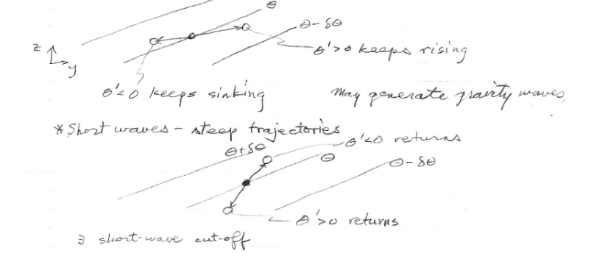 θ
θ-δθ
z
y
θ'>0 keeps rising
θ'<0 keeps sinking
May generate gravity waves
*Short waves - steep trajectories
θ'<0 returns
θ+δθ
θ
θ-δθ
θ'>0 returns
∃ short-wave cut-off